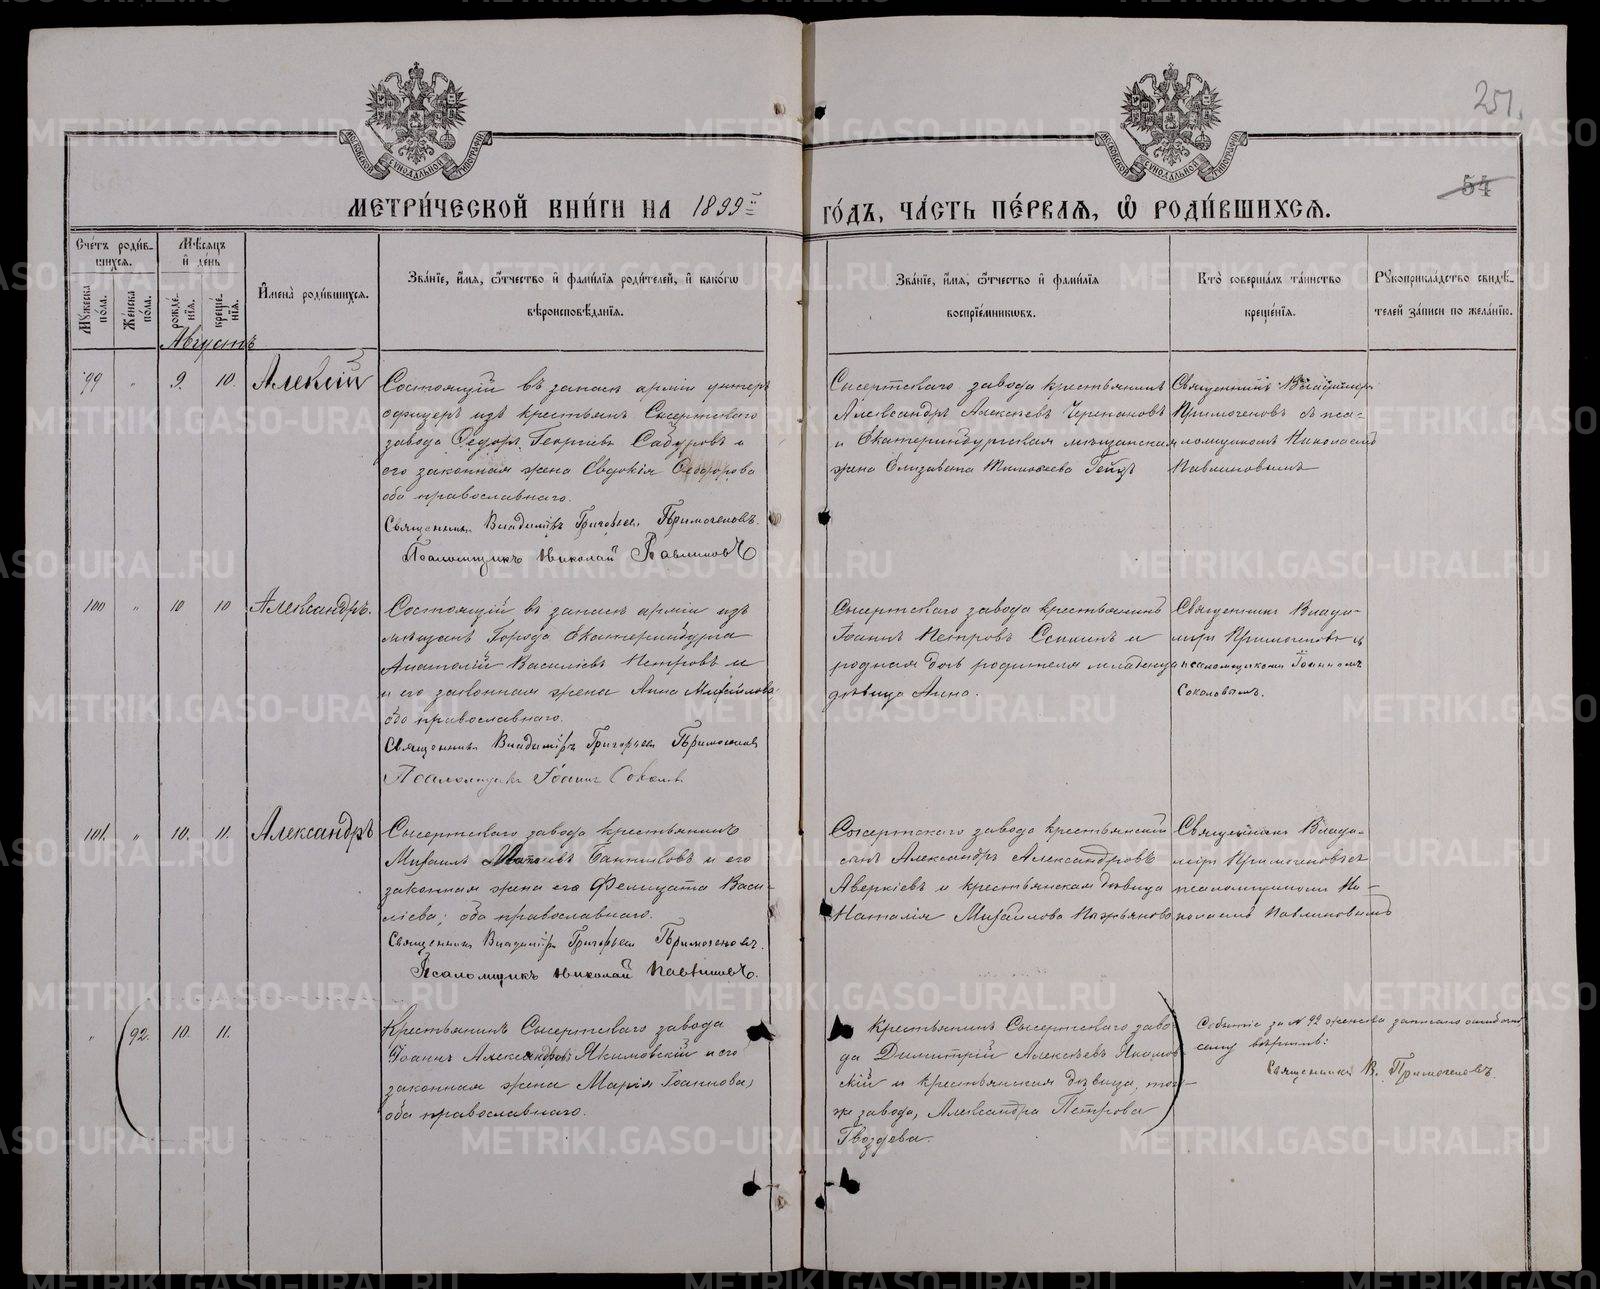 251.
54
МЕТРИ́ЧЕСКОЙ КНИ́ГИ НА 1899 ГО́ДЪ, ЧА́СТЬ ПЕ́РВАЯ, Ѡ РОДИ́ВШИХСЯ.
Сче́тъ роди́вшихся.
Мѣ́сяцъ и де́нь
Му́жеска по́ла.
Же́нска по́ла.
рожде́нїя.
креще́нїя.
И҆мена̀ роди́вшихся.
Зва́нїе, и҆́мя, ѻ҆́тчество и҆ фами́лїя роди́телей, и҆ како́гѡ
вѣроисповѣ́данїя.
Зва́нїе, и҆́мя, ѻ҆́тчество и҆ фами́лїя
воспрїе́мниковъ.
Кто̀ соверша́лъ та́инство
креще́нїя.
Рꙋкоприкла́дство свидѣ́-
телей за́писи по жела́нїю.
Августъ
99 " 9. 10. Алексій
Состоящій въ запасѣ арміи унтеръ
офицеръ изъ крестьянъ Сысертскаго
завода Ѳедоръ Георгіевъ Сабуровъ и
его законная жена Евдокія Ѳедорова
оба православнаго.
Священникъ Владиміръ Григорьевъ Примогеновъ.
Псаломщикъ Николай Павлиновъ
Сысертскаго завода крестьянинъ
Александръ Алексѣевъ Черепановъ
и Екатеринбургская мѣщанская
жена Елизавета Тимоѳеева
Священникъ Владиміръ
Примогеновъ съ псаломщикомъ Николаемъ
Павлиновымъ
100 " 10 10 Александръ.
Состоящій въ запасѣ арміи изъ
мѣщанъ Города Екатеринбурга
Анатолій Василіевъ Петровъ и
и его законная жена Анна Михайлова
оба православнаго.
Священникъ Владиміръ Григорьевъ Примогеновъ
Псаломщикъ Іоаннъ Соколовъ
Сысертскаго завода крестьянинъ
Іоаннъ Петровъ и
родная дочь родителя младенца
дѣвица Анна.
Священникъ Влади-
миръ Примогеновъ съ
псаломщикомъ Іоанномъ
Соколовымъ.
101. " 10. 11. Александръ
Сысертскаго завода крестьянинъ
Михаилъ Банниковъ и его
законная жена его Фелицата Васи-
лiева; оба православнаго.
Священникъ Владиміръ Григорьевъ Примогеновъ.
Псаломщикъ Николай Павлиновъ.
Сысертскаго завода крестьянскій
сынъ Александръ Александровъ
Аверкіевъ и крестьянская дѣвица
Наталія Михайлова
Священникъ Влади-
міръ Примогеновъ съ
псаломщикомъ Ни-
колаемъ Павлиновымъ
" 92. 10. 11.
Крестьянинъ Сысертскаго завода
Іоаннъ Александровъ Якимовскій и его
законная жена Марія Іоаннова,
оба православнаго.
Крестьянинъ Сысертскаго заво-
да Димитрій Алексѣевъ Якимов-
скій и крестьянская дѣвица, того-
же завода, Александра Петрова
Гвоздева.
Событіе за № 92 женска записано ошибочно
Священникъ В. Примогеновъ.
METRIKI.GASO-URAL.RU